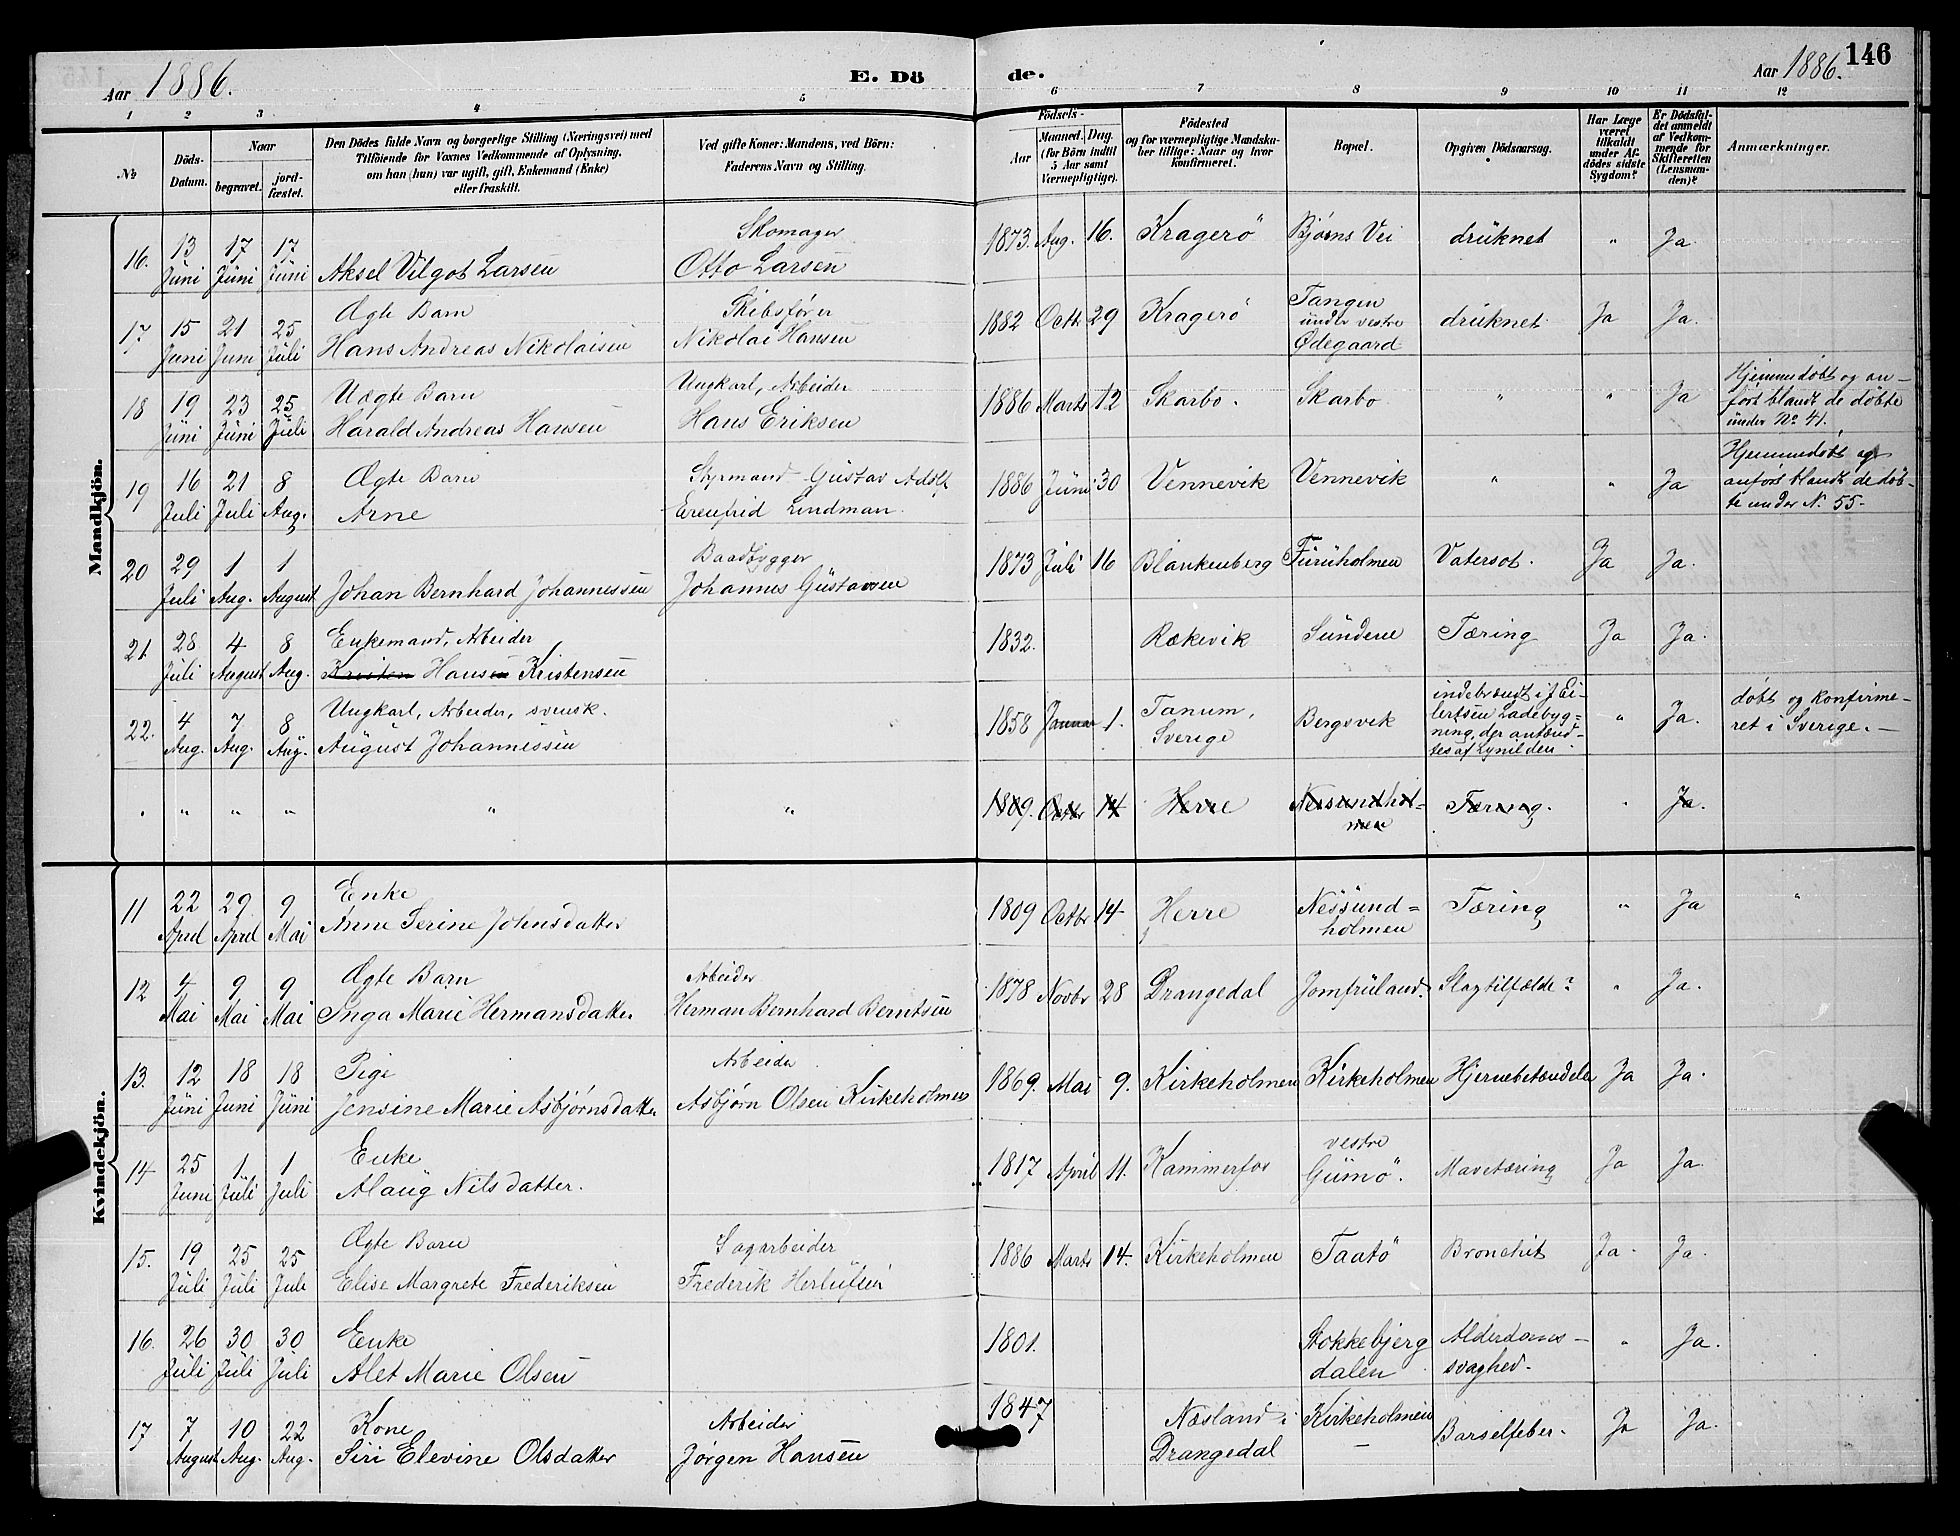 Aar 1886. E. Dö de. Aar 1886. 146
1 2 3 4 5 6 7 8 9 10 11 12
No Döds-Datum. Naar begravet. jord-fæstet. Den Dödes fulde Navn og borgerlige Stilling (Næringsvei) med Tilföiende for Voxnes Vedkommende af Oplysning, om han (hun) var ugift, gift, Enkemand (Enke) eller fraskilt. Ved gifte Koner: Mandens, ved Börn: Faderens Navn og Stilling. Födsels- Aar Maaned. Dag. (for Börn indtil 5 Aar samt Værnepligtige). Födested og for værnepligtige Mandska-ber tillige: Naar og hvor konfirmeret. Bopæl. Opgiven Dödsaarsag. Har Læge været tilkaldt under Af-dödes sidste Sygdom? Er Dödsfal-det anmeldt af Vedkom-mende for Skifteretten (Lensman-den)? Anmærkninger.
Mandkjön.
16. 13 Juni 17 Juni 17 Juni Aksel Vilgot Larsen Skomager Otto Larsen 1873. Aug. 16. Kragerö Bjørns Vei druknet " Ja.
17 15 Juni 21 Juni 25 Juli Ægte Barn Hans Andreas Nikolaisen Skibsfører Nikolai Hansen 1882 Octbr 29 Kragerö Tangen under vestre Ødegaard druknet Ja Ja.
18 19 Juni 23 Juni 25 Juli Uægte Barn Harald Andreas Hansen Ungkarl, Arbeider Hans Eriksen 1886 Marts 12 Skarbo. Skarbo " " Ja Hjemmedøbt og an-ført blandt de døbte under No 41.
19 16 Juli 21 Juli 8 Aug. Ægte Barn Arne Styrmand Gustav Adolf Erenfrid Lindman. 1886 Juni 30 Vennevik Vennevik " " Ja Hjemmedøbt og anført blandt de døb-te under N. 55-
20 29 Juli 1 Aug. 1 August Johan Bernhard Johannessen Baadbygger Johannes Gustavsen 1873 Juli 16 Blankenberg Furuholmen Vatersot. Ja Ja.
21. 28 Juli 4 August 8 Aug. Enkemand, Arbeider Kristen Hansen Kristensen 1832. Rækevik Sundene Tæring Ja Ja.
22. 4 Aug. 7 Aug. 8 Aug. Ungkarl, Arbeider, svensk. August Johannessen 1858 Januar 1. Tanum, Sverige Bergsvik indebrændt i J Ei-lertsen Ladebyg-ning, der antænd-tes af Lynilden. " Ja. døbt og konfirme-ret i Sverige.-
" " " " " " 1809. Octbr 14 Herre Nessundhol-men Tæring. " Ja.
Kvindekjön.
11 22 April 29 April 9 Mai Enke Anne Serine Johnsdatter 1809 Octbr 14 Herre Nessund=holmen Tæring " Ja "
12 4 Mai 9 Mai 9 Mai Ægte Barn Inga Marie Hermansdatter Arbeider Herman Bernhard Berntsen 1878 Novbr 28 Drangedal Jomfruland. Slagtilfælde? " Ja.
13. 12 Juni 18 Juni 18 Juni Pige Jensine Marie Asbjørnsdatter Arbeider Asbjørn Olsen Kirkeholmen 1869. Mai 9. Kirkeholmen Kirkeholmen Hjernebetændelse Ja Ja.
14 25 Juni 1 Juli 1 Juli Enke Alaug Nilsdatter. 1817 April 11. Kammerfos vestre Gumö. Mavetæring Ja Ja.
15. 19 Juli 25 Juli 25 Juli Ægte Barn Elise Margrete Frederiksen Sagarbeider Frederik Herlufsen 1886 Marts 14. Kirkeholmen Taatö Bronchit Ja. Ja.
16. 26 Juli 30 Juli 30 Juli Enke Alet Marie Olsen 1801. Stokkebjerg dalen Alderdoms-svaghed. " Ja.
17 7 August 10 Aug. 22 Aug. Kone Siri Elevine Olsdatter Arbeider Jørgen Hansen 1847 Næsland i Drangedal Kirkeholmen - Barselfeber. Ja Ja.